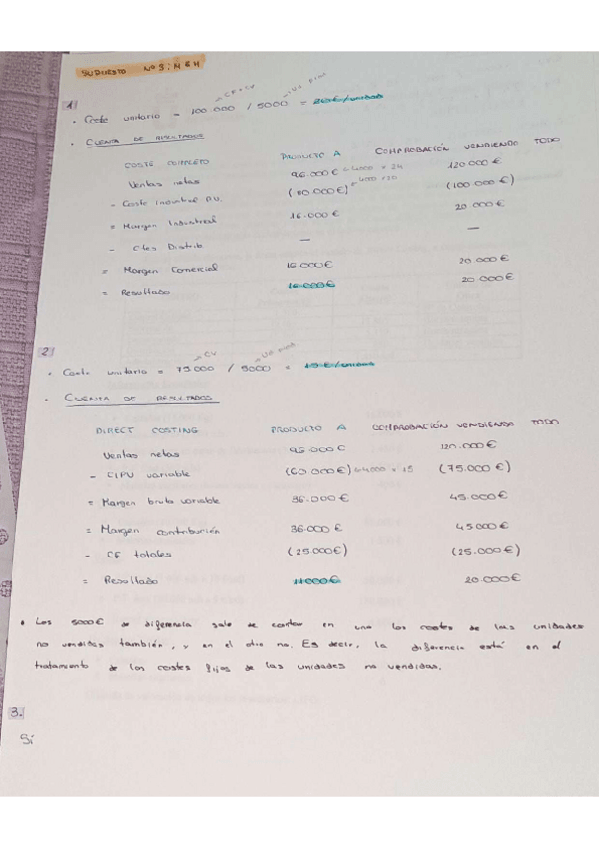 SUPUESTO Nº 3: M & H
1
→ CF + CV → Us. prod
• Coste unitario = 100.000 / 5000 = 20€/unidad
• CUENTA DE RESULTADOS
COSTE COMPLETO PRODUCTO A COMPROBACIÓN VENDIENDO TODO
Ventas netas 96.000€ → 4000 × 24 120.000€
- Coste industrial P.V. (80.000€) → 4000 × 20 (100.000€)
= Margen Industrial 16.000€ 20.000€
- Ctes Distrib — —
= Margen Comercial 16.000€ 20.000€
= Resultado 16.000€ 20.000€
2
→ CV → Us. prod
• Coste unitario = 75.000 / 5000 = 15€/unidad
- CUENTA DE RESULTADOS
DIRECT COSTING PRODUCTO A COMPROBACIÓN VENDIENDO TODO
Ventas netas 96.000€ 120.000€
- CIPV variable (60.000€) → 4000 × 15 (75.000€)
= Margen bruto variable 36.000€ 45.000€
= Margen contribución 36.000€ 45000€
- CF totales (25.000€) (25.000€)
= Resultado 11000€ 20.000€
• Los 5000€ de diferencia sale de contar en uno los costes de las unidades
no vendidas también, y en el otro no. Es decir, la diferencia está en el
tratamiento de los costes fijos de las unidades no vendidas.
3.
Sí